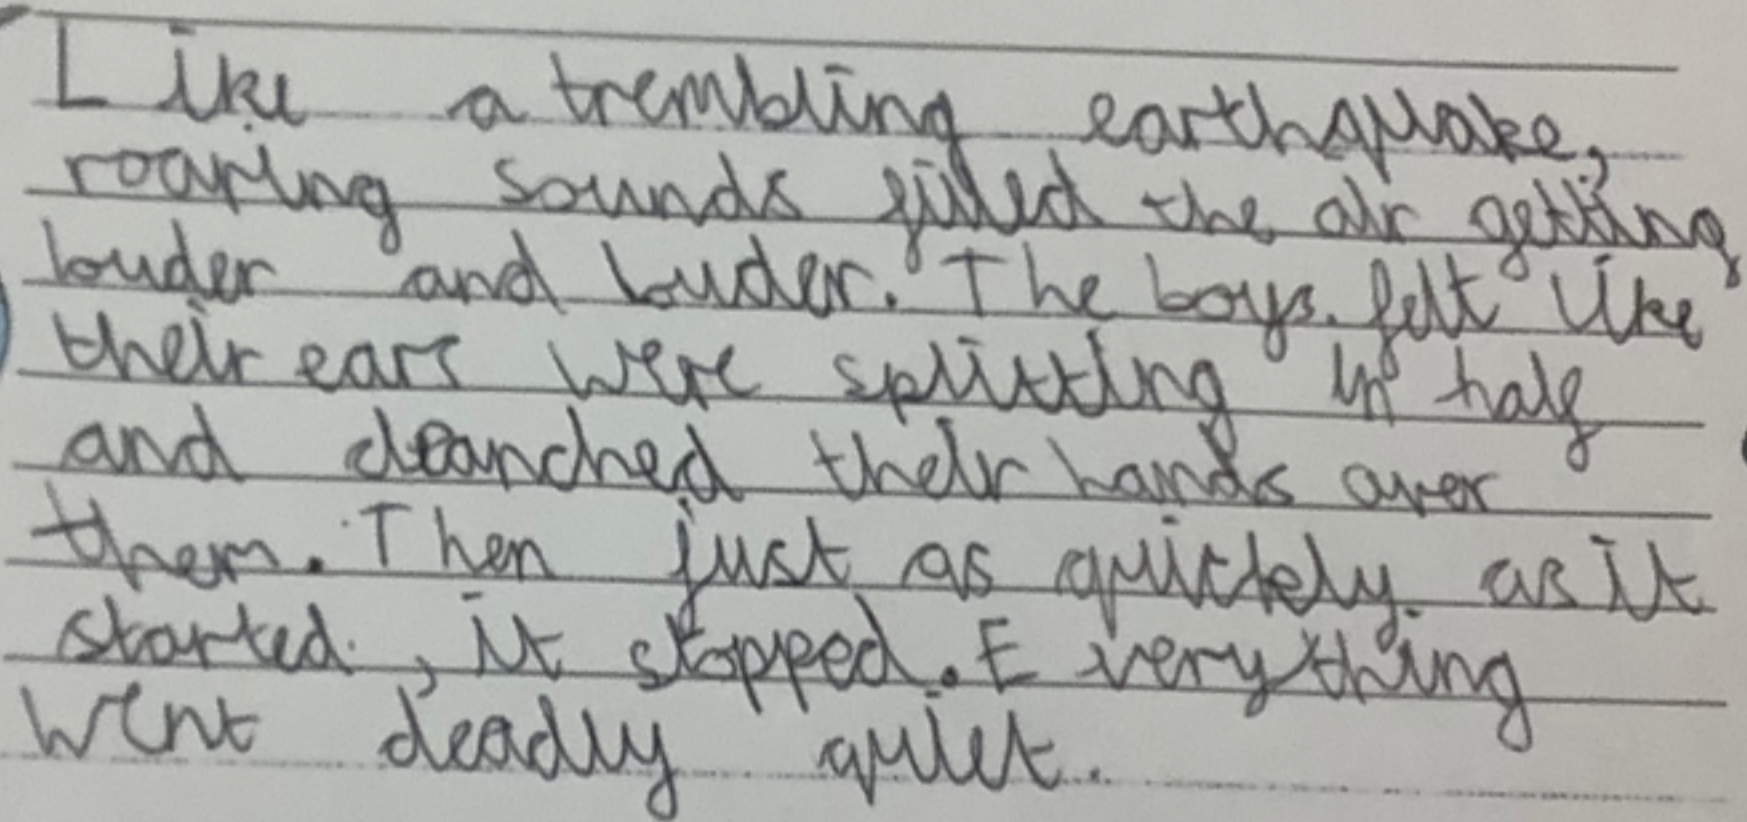 Like a trembling earthquake,
roaring sounds filled the air getting
louder and louder. The boys felt like
their ears were splitting in half
and cleanched their hands over
them. Then just as quickely as it
started, it stopped. Everything
went deadly quiet.